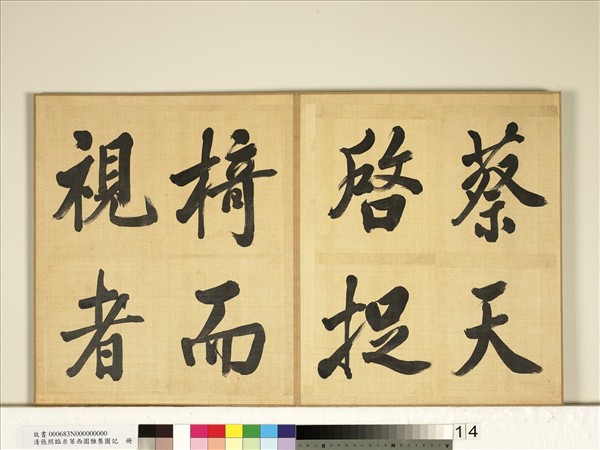 蔡天
啓捉
椅而
視者
故書 000683N000000000
清張照臨米芾西園雅集圖記 冊
14